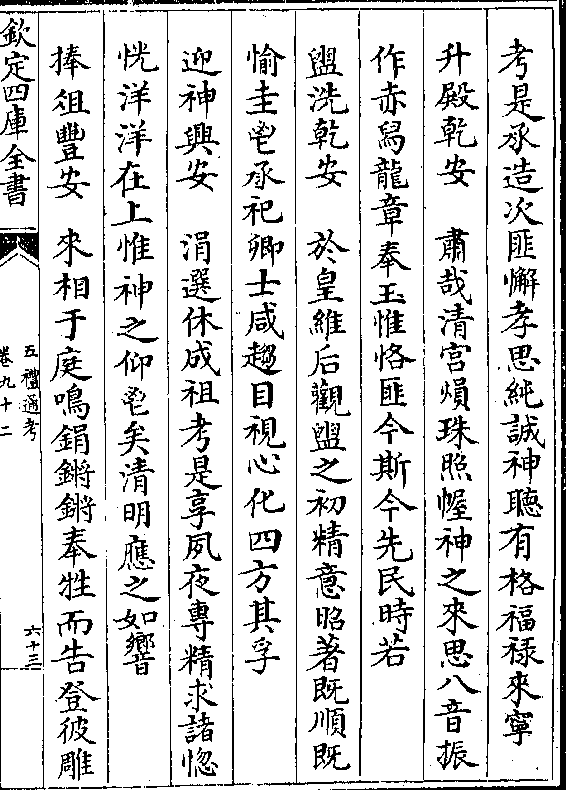 考是承造次匪懈孝思純誠神聽有格福祿來寧
升殿乾安　肅哉清宫熉珠照幄神之來思八音振
作赤舄龍章奉玉惟恪匪今斯今先民時若
盥洗乾安　於皇維后觀盥之初精意昭著既順既
愉圭鬯承祀卿士咸趨目視心化四方其孚
迎神興安　涓選休成祖考是享夙夜專精求諸惚
恍洋洋在上惟神之仰鬯矣清明應之如響
捧俎豐安　來相于庭鳴鋗鏘鏘奉牲而告登彼雕
欽定四庫全書
五禮通考
卷九十二
六十三